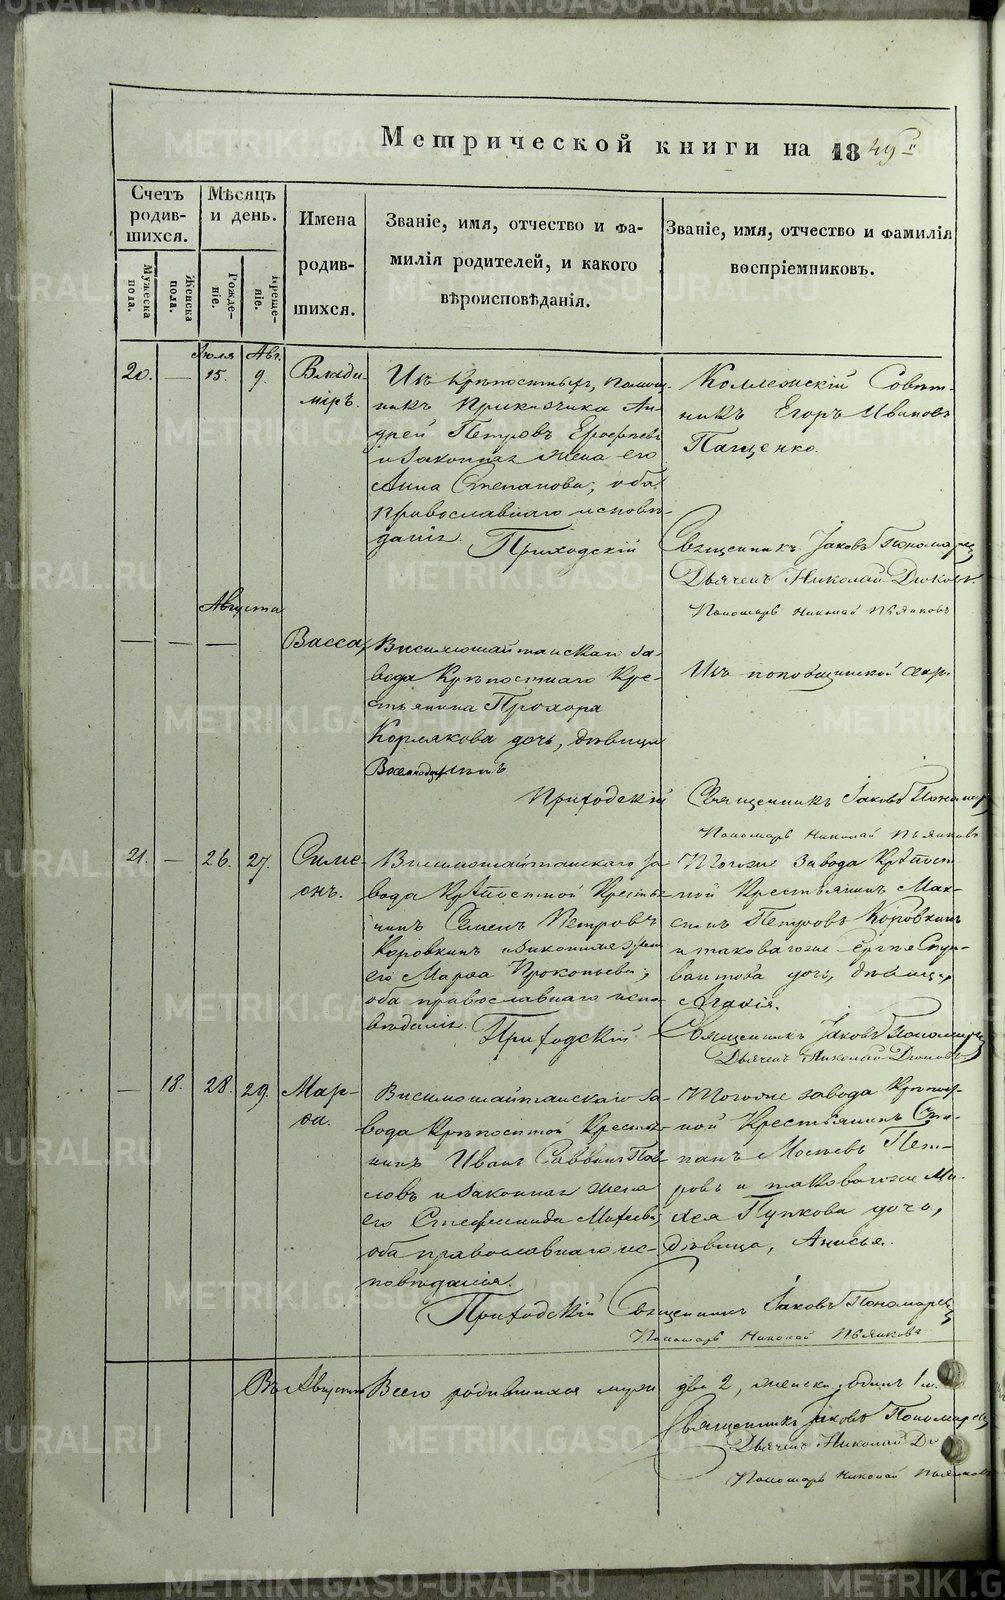 Метрической книги на 1849 г.
Счетъ родив-шихся.
Мѣсяцъ и день.
Имена родив-шихся.
Званіе, имя, отчество и фа-
милія родителей, и какого
вѣроисповѣданія.
Званіе, имя, отчество и фамилія
воспріемниковъ.
Мужеска пола.
Женска пола.
Рожде-ніе.
Креще-ніе.
Іюля Авг.
20. — 15. 9. Влади-
міръ.
Изъ крѣпостныхъ, помощ-
никъ Прикащика Ан-
дрей Петровъ Ерофѣевъ
и законная жена его
Анна Степанова, оба
православнаго исповѣ-
данія. Приходскій
Коллежскій Совѣт-
никъ Егоръ Ивановъ
Пащенко.
Священникъ Іаковъ Пономаревъ
Дьячекъ Николай
Пономарь Николай
Августа
— — — Васса,
Висимошайтанскаго за-
вода крѣпостнаго кре-
стьянина Прохора
Кормякова дочь, дѣвица
лѣтъ
Изъ поповщинской секты
Приходскій Священникъ Іаковъ Пономаревъ
Пономарь Николай
21. — 26. 27. Симе-
онъ.
Висимошайтанскаго за-
вода крѣпостной крестья-
нинъ Семенъ Петровъ
Коровкинъ и законная жена
его Марѳа Прокопьева,
оба православнаго испо-
вѣданія. Приходскій
Тогоже завода крѣпост-
ной крестьянинъ Мак-
симъ Петровъ Коровкинъ
и таковагоже
дочь, дѣвица,
Агаѳія.
Священникъ Іаковъ Пономаревъ
Дьячекъ Николай
— 18. 28. 29. Мар-
ѳа.
Висимошайтанскаго за-
вода крѣпостной крестья-
нинъ Иванъ Саввинъ Пав-
ловъ и законная жена
его Стефанида Матѳеева,
оба православнаго ис-
повѣданія.
Тогоже завода крѣпост-
ной крестьянинъ Сте-
панъ Мосѣевъ Пет-
ровъ и таковагоже Ми-
хея Пупкова дочь,
дѣвица, Анисья.
Приходскій Священникъ Іаковъ Пономаревъ
Пономарь Николай
Въ Августѣ Всего родившихся муж. два 2, женска одинъ 1.
Священникъ Іаковъ Пономаревъ
Дьячекъ Николай
Пономарь Николай
METRIKI.GASO-URAL.RU